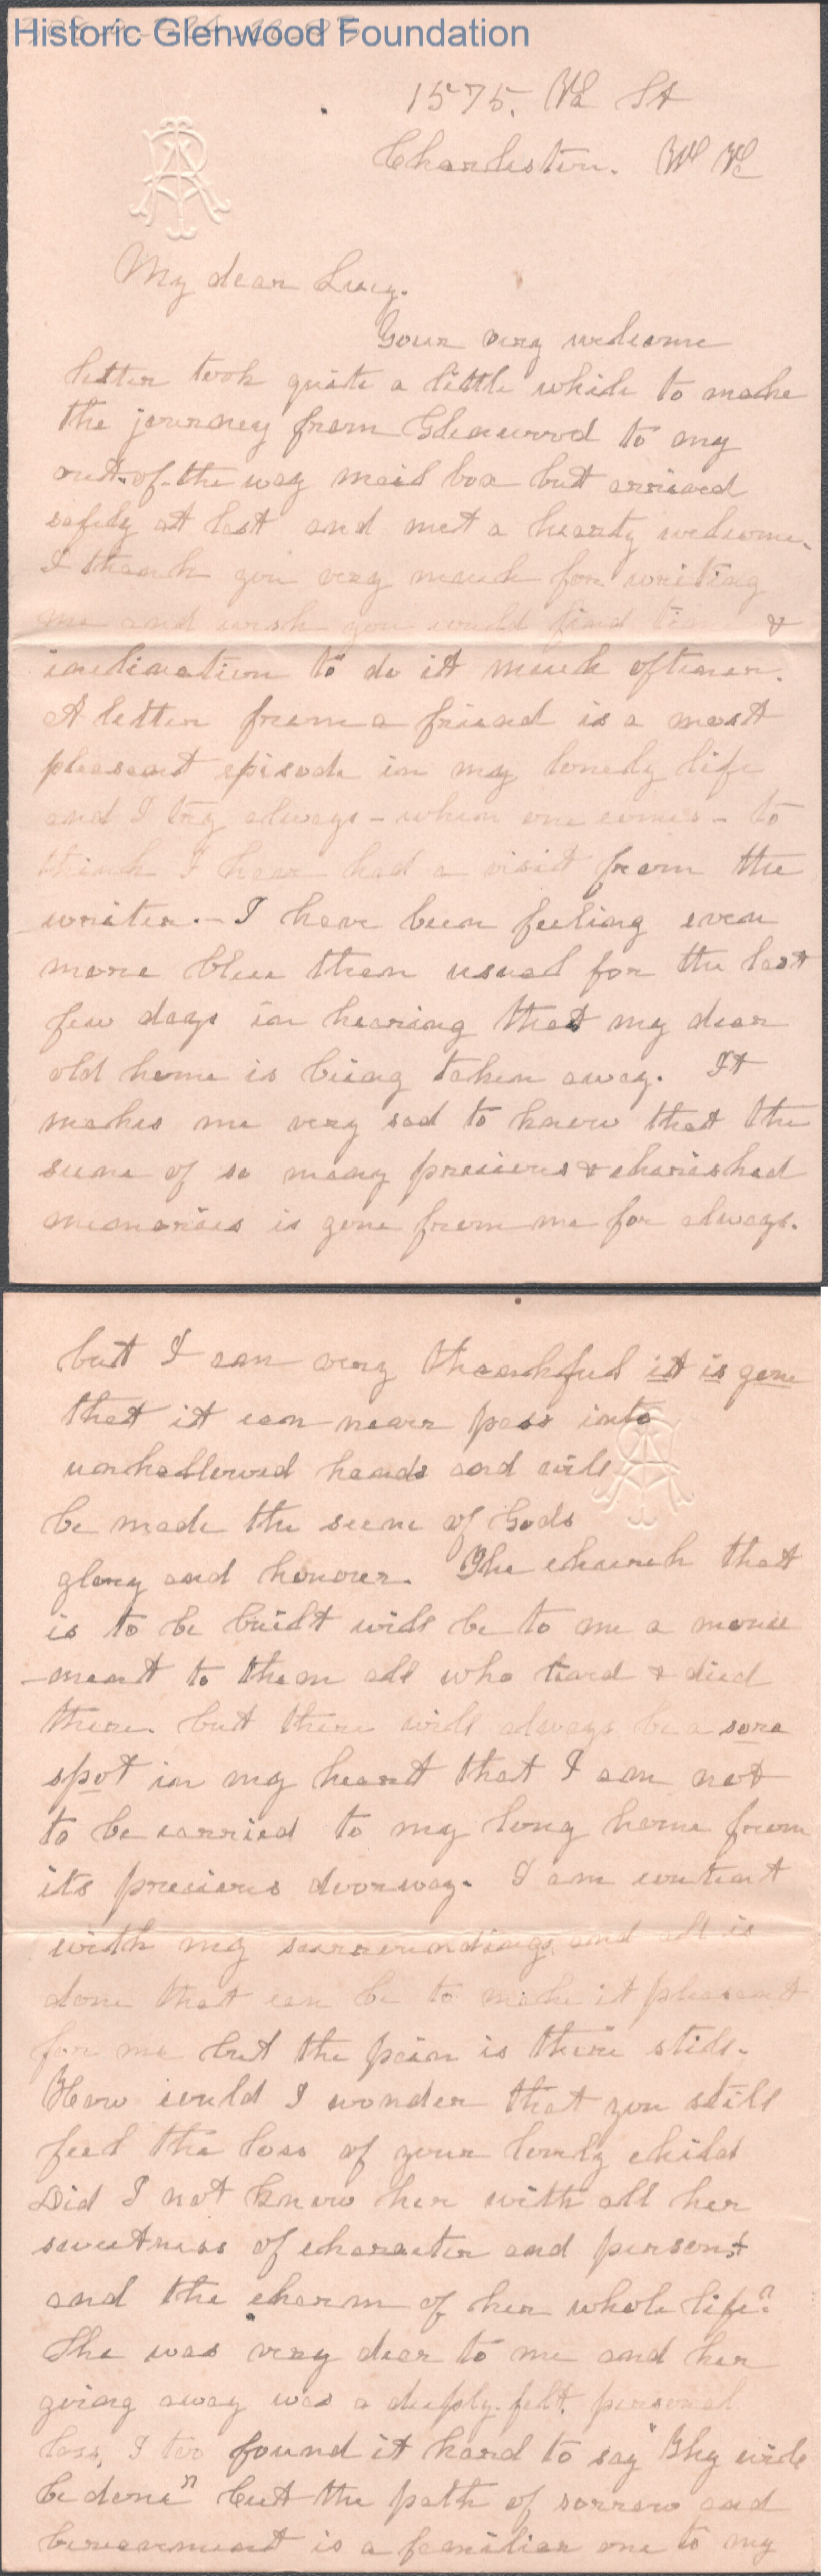 Historic Glenwood Foundation
1575. Va St
Charleston. W Va
My dear Lucy.
Your very welcome
letter took quite a little while to make
the journey from Glenwood to my
out-of-the way mail box but arrived
safely at last and met a hearty welcome.
I thank you very much for writing
me and wish you would find &
inclination to do it much oftener.
A letter from a friend is a most
pleasant episode in my lonely life
and I try always - when one comes - to
think I have had a visit from the
writer. - I have been feeling even
more blue than usual for the last
few days in hearing that my dear
old home is being taken away. It
makes me very sad to know that the
scene of so many precious & cherished
memories is gone from me for always.
but I am very thankful it is gone
that it can never pass into
unhallowed hands and will
be made the scene of Gods
glory and honour. The church that
is to be built will be to me a monu
-ment to them all who & died
there. but there will always be a sore
spot in my heart that I am not
to be carried to my long home from
its precious doorway. I am content
with my surroundings and all is
done that can be to make it pleasant
for me but the pain is there still.
How could I wonder that you still
feel the loss of your lovely child
Did I not know her with all her
sweetness of character and person,
and the charm of her whole life?
She was very dear to me and her
going away was a deeply-felt, personal
loss, I too found it hard to say "Thy will
be done" but the path of sorrow and
bereavement is a familiar one to my